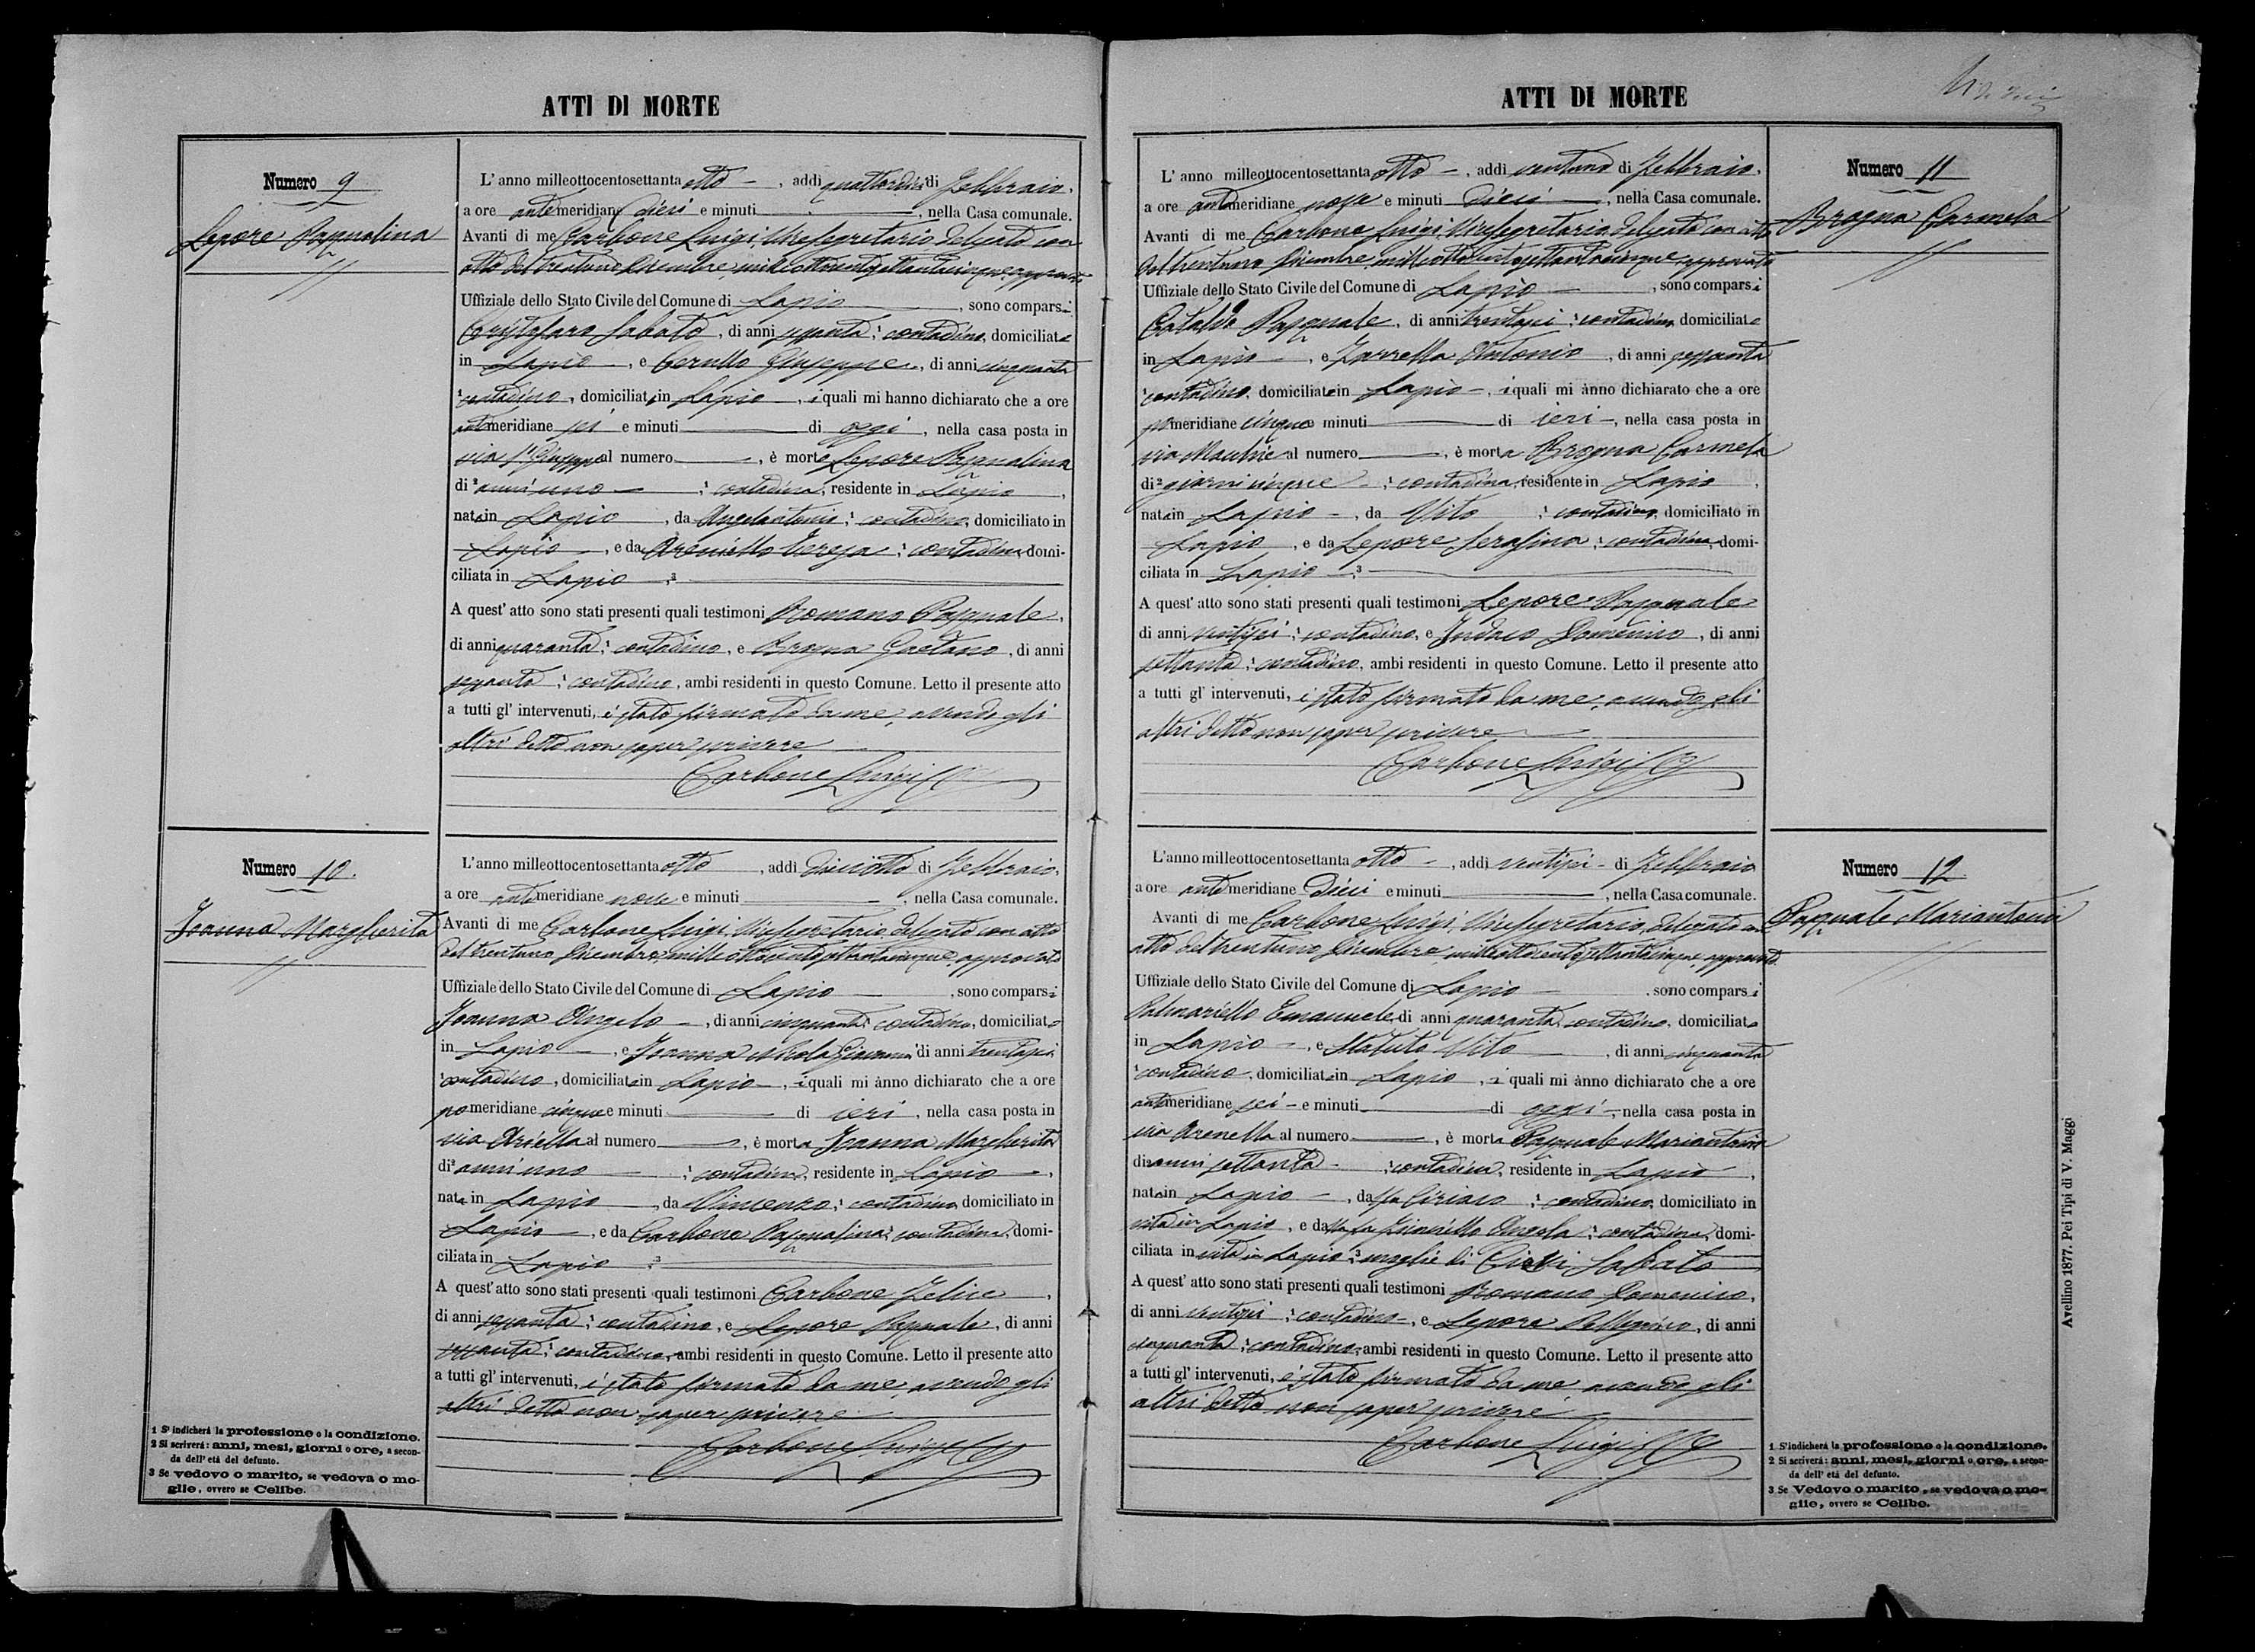 ATTI DI MORTE
Numero 9
Lepore Pasqualina
L' anno milleottocentosettanta otto, addì quattordici di Febbraio,
a ore antemeridiane dieci e minuti, nella Casa comunale.
Avanti di me Carbone Luigi, Vicesegretario delegato con
atto del trentuno Dicembre milleottocentosettantacinque approvato
Uffiziale dello Stato Civile del Comune di Lapio, sono comparsi
Cristofaro Sabato, di anni sessanta, contadino, domiciliato
in Lapio, e Cerullo Giuseppe, di anni cinquanta
contadino, domiciliato in Lapio, i quali mi hanno dichiarato che a ore
antimeridiane sei e minuti di oggi, nella casa posta in
via S. Giuseppe al numero, è morta Lepore Pasqualina
di anni uno, contadina, residente in Lapio,
nata in Lapio, da Angelantonio, contadino, domiciliato in
Lapio, e da Areniello Teresa, contadina, domi-
ciliata in Lapio
A quest' atto sono stati presenti quali testimoni Romano Pasquale,
di anni quaranta, contadino, e Brogna Gaetano, di anni
sessanta, contadino, ambi residenti in questo Comune. Letto il presente atto
a tutti gl' intervenuti, è stato firmato da me, avendo gli
altri detto non saper scrivere
Carbone Luigi
Numero 10.
Ioanna Margherita
L'anno milleottocentosettanta otto, addì diciotto di Febbraio,
a ore antemeridiane nove e minuti, nella Casa comunale.
Avanti di me Carbone Luigi, Vicesegretario delegato con atto
del trentuno Dicembre milleottocentosettantacinque, approvato
Uffiziale dello Stato Civile del Comune di Lapio, sono comparsi
Ioanna Angelo, di anni cinquanta, contadino, domiciliato
in Lapio, e Ioanna Nicola Giovanni di anni trentasei
contadino, domiciliato in Lapio, i quali mi ànno dichiarato che a ore
pomeridiane cinque e minuti di ieri, nella casa posta in
via Ariella al numero, è morta Ioanna Margherita
di anni uno, contadina, residente in Lapio,
nata in Lapio, da Vincenzo, contadino, domiciliato in
Lapio, e da Carbone Pasqualina, contadina, domi-
ciliata in Lapio
A quest' atto sono stati presenti quali testimoni Carbone Felice,
di anni sessanta, contadino, e Lepore Pasquale, di anni
sessanta, contadino, ambi residenti in questo Comune. Letto il presente atto
a tutti gl' intervenuti, è stato firmato da me, avendo gli
altri detto non saper scrivere
Carbone Luigi
1 S' indicherà la professione o la condizione.
2 Si scriverà: anni, mesi, giorni o ore, a secon-
da dell' età del defunto.
3 Se vedovo o marito, se vedova o mo-
glie, ovvero se Celibe.
ATTI DI MORTE
Numero 11
Brogna Carmela
L' anno milleottocentosettanta otto, addì ventuno di Febbraio,
a ore antimeridiane nove e minuti dieci, nella Casa comunale.
Avanti di me Carbone Luigi, Vicesegretario, delegato con atto
del trentuno Dicembre milleottocentosettantacinque approvato
Uffiziale dello Stato Civile del Comune di Lapio, sono comparsi
Cataldo Pasquale, di anni trentasei, contadino, domiciliato
in Lapio, e Zarrella Antonio, di anni sessanta
contadino, domiciliato in Lapio, i quali mi ànno dichiarato che a ore
pomeridiane cinque e minuti di ieri, nella casa posta in
via al numero, è morta Brogna Carmela
di giorni cinque, contadina, residente in Lapio,
nata in Lapio, da Vito, contadino, domiciliato in
Lapio, e da Lepore Serafina, contadina, domi-
ciliata in Lapio
A quest' atto sono stati presenti quali testimoni Lepore Pasquale
di anni ventisei, contadino, e Indaco Domenico, di anni
settanta, contadino, ambi residenti in questo Comune. Letto il presente atto
a tutti gl' intervenuti, è stato firmato da me, avendo gli
altri detto non saper scrivere
Carbone Luigi
Numero 12
Pasquale Mariantonia
L'anno milleottocentosettanta otto, addì ventisei di Febbraio
a ore antemeridiane dieci e minuti, nella Casa comunale.
Avanti di me Carbone Luigi, Vicesegretario, delegato con
atto del trentuno Dicembre milleottocentosettantacinque, approvato
Uffiziale dello Stato Civile del Comune di Lapio, sono comparsi
Palmariello Emanuele di anni quaranta, contadino, domiciliato
in Lapio, e Statuto Vito, di anni cinquanta
contadino, domiciliato in Lapio, i quali mi ànno dichiarato che a ore
antimeridiane sei e minuti di oggi, nella casa posta in
via Arenella al numero, è morta Pasquale Mariantonia
di anni settanta, contadina, residente in Lapio,
nata in Lapio, da fu Ciriaco, contadino, domiciliato in
vita in Lapio, e da fu Angela, contadina, domi-
ciliata in vita in Lapio, moglie di Sabato
A quest' atto sono stati presenti quali testimoni Romano Domenico,
di anni ventisei, contadino, e Lepore Pellegrino, di anni
cinquanta, contadino, ambi residenti in questo Comune. Letto il presente atto
a tutti gl' intervenuti, è stato firmato da me avendo gli
altri detto non saper scrivere
Carbone Luigi
1 S'indicherà la professione o la condizione.
2 Si scriverà: anni, mesi, giorni o ore, a secon-
da dell' età del defunto.
3 Se Vedovo o marito, se vedova o mo-
glie, ovvero se Celibe.
Avellino 1877. Pei Tipi di V. Maggi